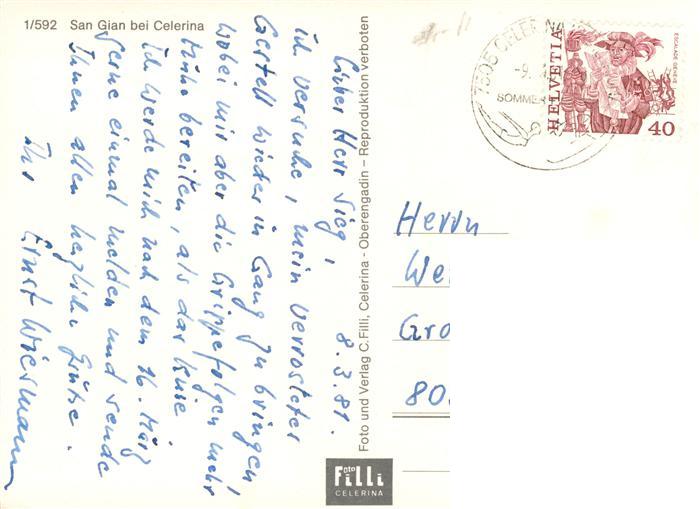 1/592 San Gian bei Celerina
8.3.81.
Lieber Herr Sieg,
ich versuche, mein verrostetes
Gestell wieder in Gang zu bringen,
wobei mir aber die Grippefolgen mehr
Mühe bereiten, als das Knie.
Ich werde mich nach dem 16. März
gerne einmal melden und sende
Ihnen allen herzliche Grüsse.
Ihr Ernst Wiesmann
Foto und Verlag C.Filli, Celerina - Oberengadin – Reproduktion verboten
Foto
Filli
CELERINA
7505 CELERINA
-9.
SOMMER
HELVETIA
ESCALADE GENÈVE
40
Herrn
We
Gro
80